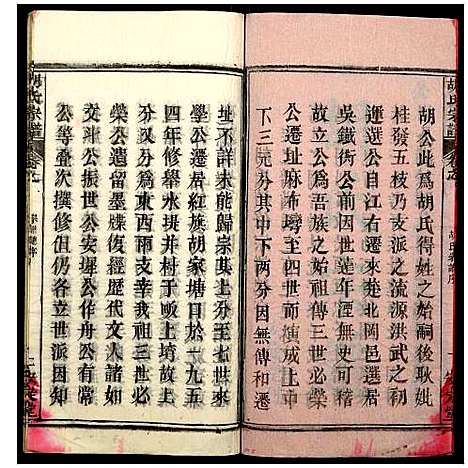 胡氏宗譜
胡公此爲胡氏得姓之始嗣後耿妣
桂發五枝乃支派之流源洪武之初
遷公自江右遷徙北岡邑
吳鐵術公因世遠年湮失史可稽
故立公爲吾族之始祖傳世必榮
公遷居麻埠
下三芫分共下兩分因宗和遷
址不詳未能歸宗其上分至七世來
學公遷居紅旗胡家塘日於一九五
四年修舉水堤并村于畈上塆故上
分又分爲東西兩分奉我祖三世必
榮公遺留墨牒復經歷代文人諸如
立中公振世公安墀公作舟公有常
公等叠次撰修但仍各立世派因知
胡氏宗譜